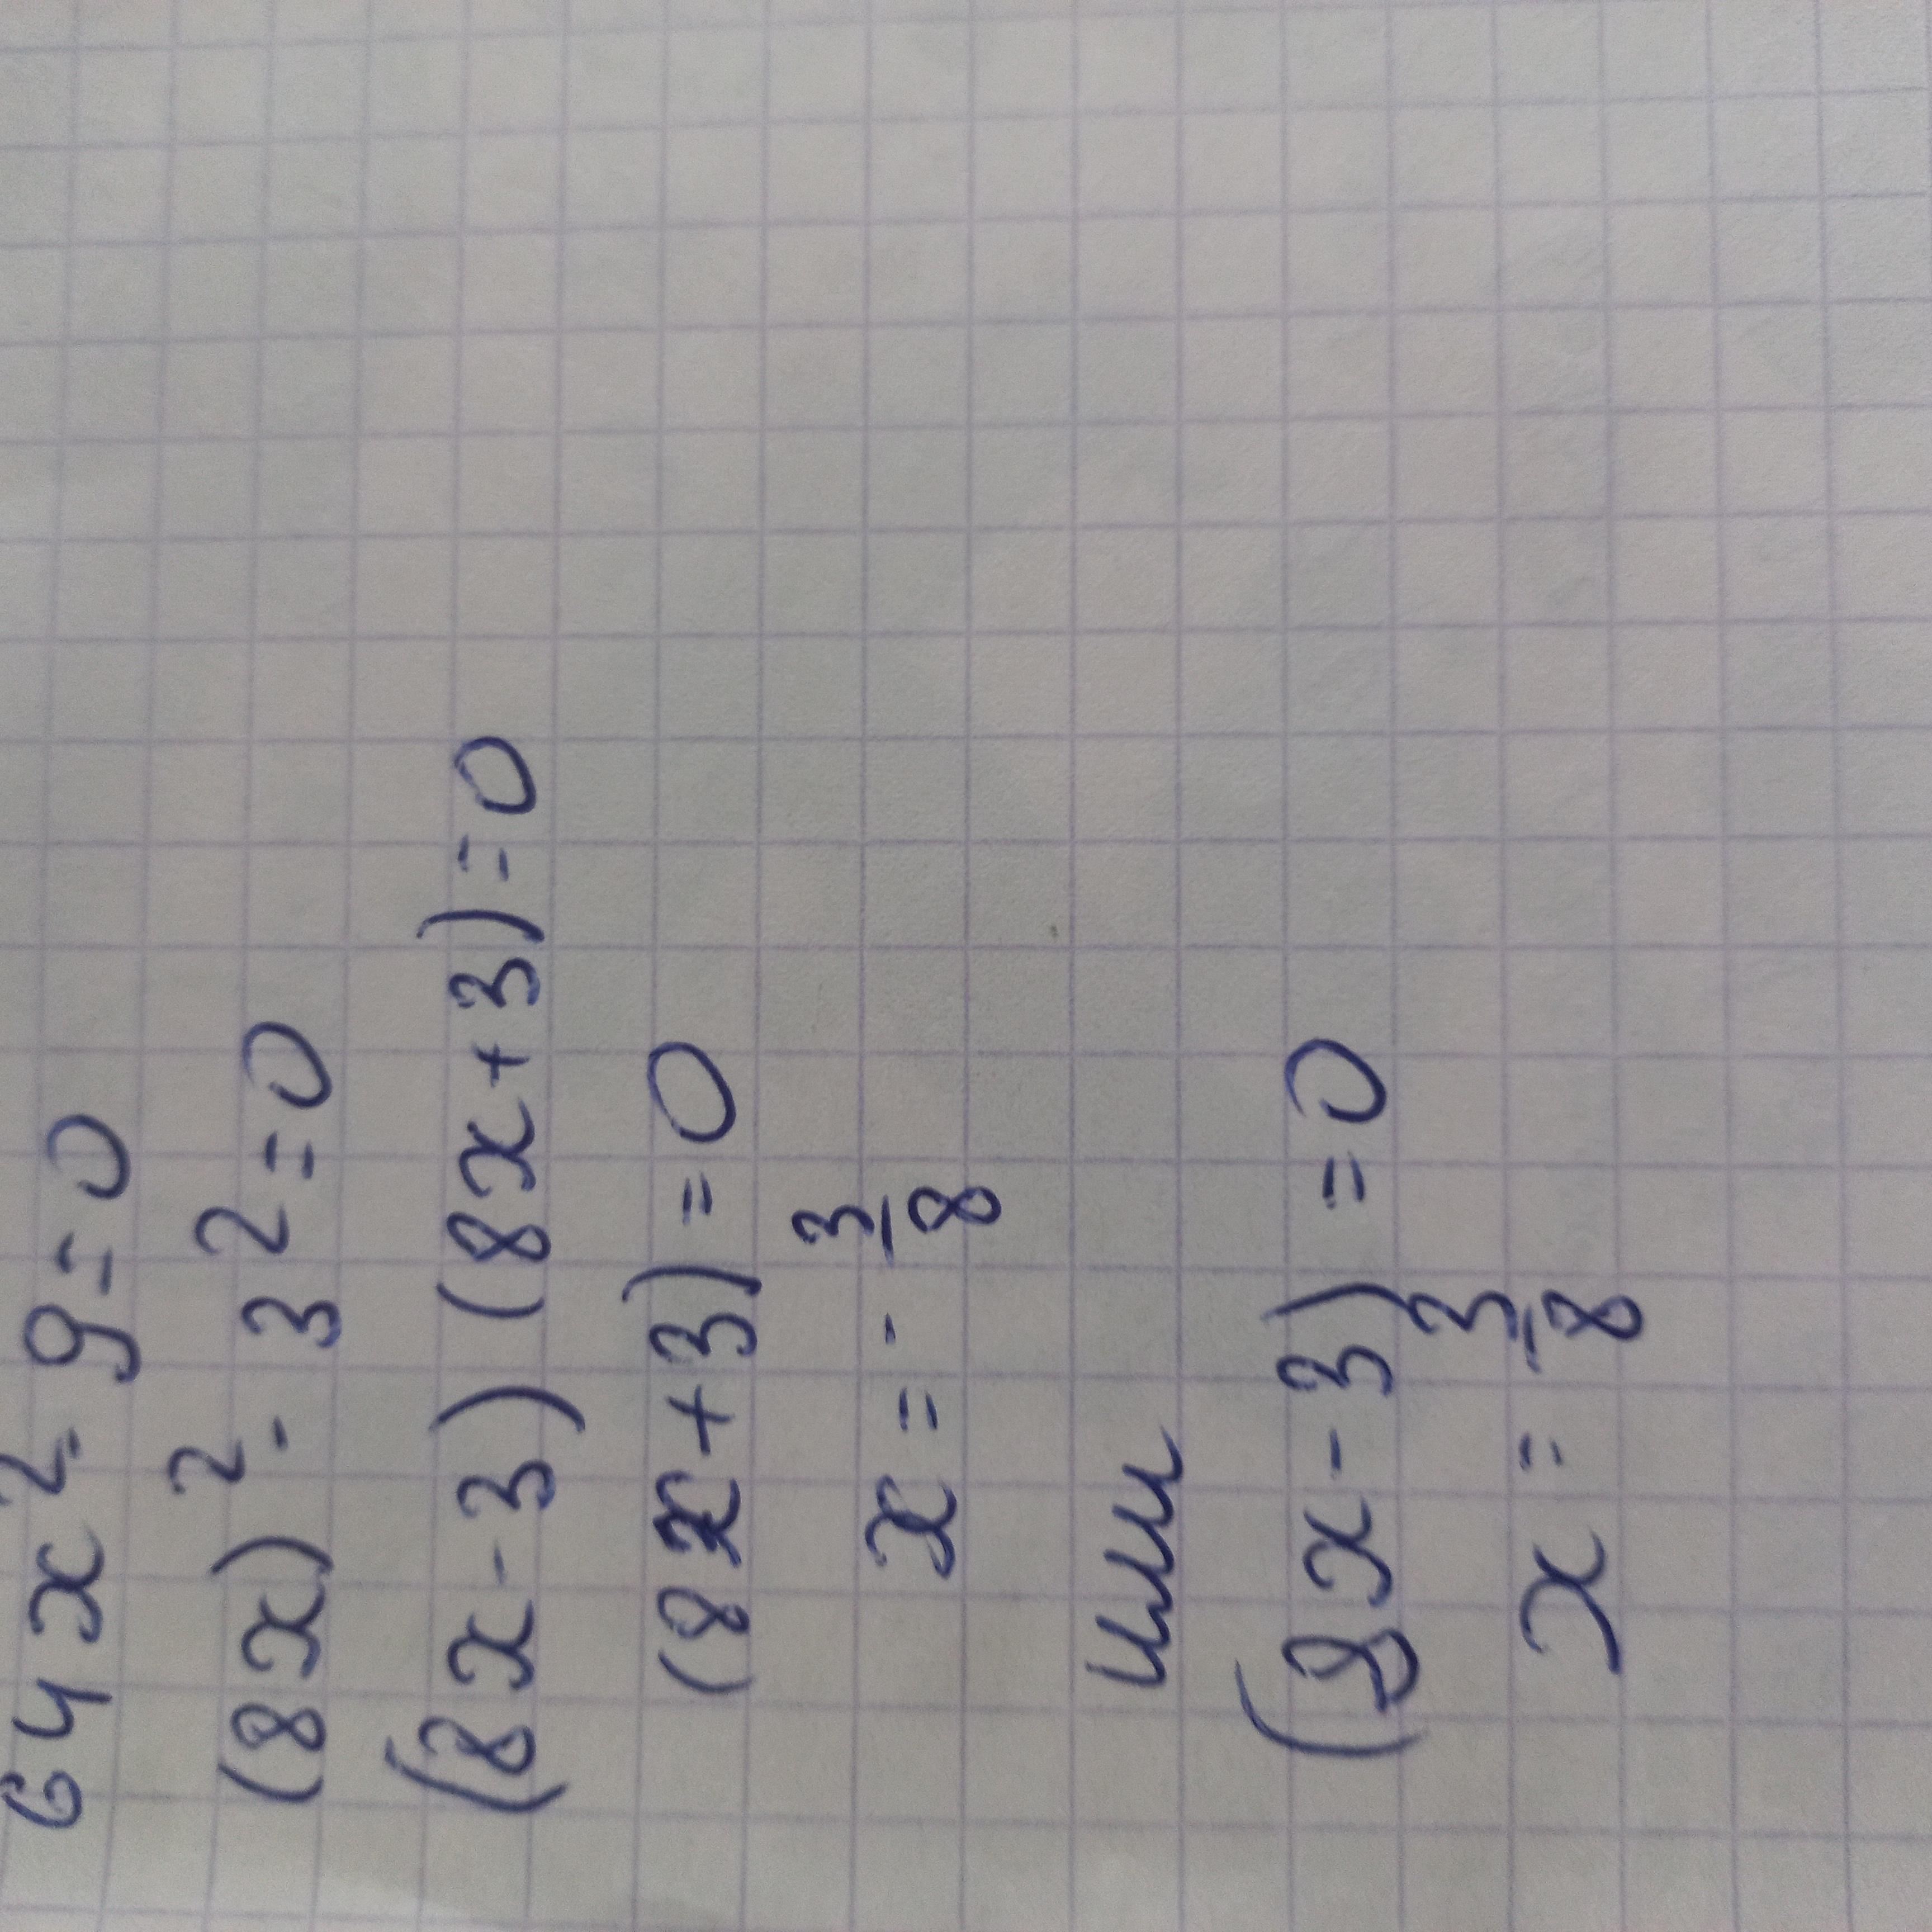 64x² - 9 = 0
(8x)² - 3² = 0
(8x - 3) (8x + 3) = 0
(8x + 3) = 0
x = - 3/8
или
(8x - 3) = 0
x = 3/8